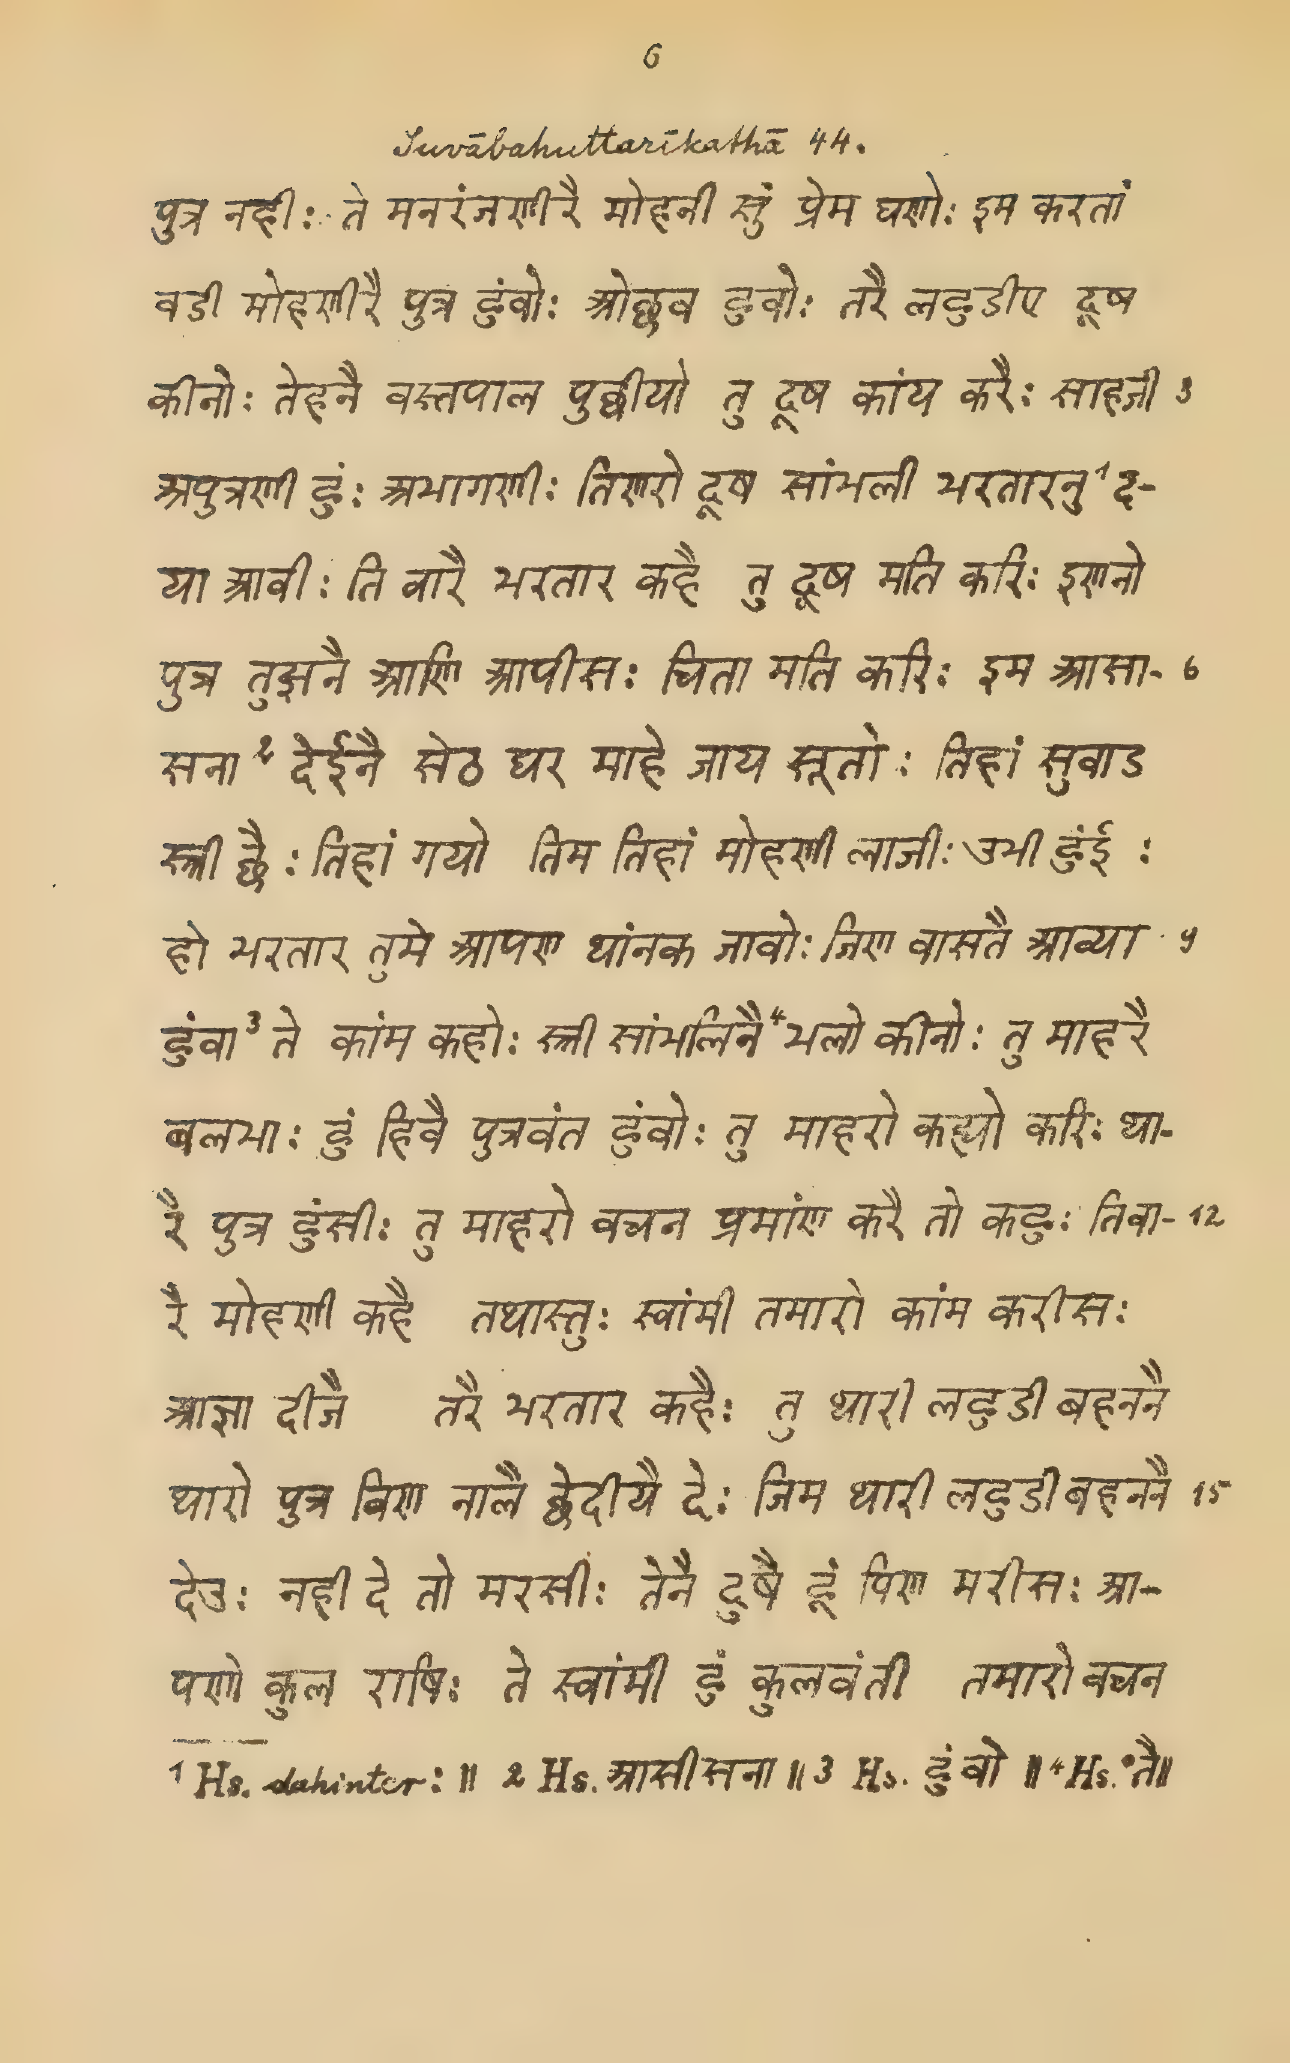 6
Suvābahuttarīkathā 44.
पुत्र नही: ते मनरंजणीरै मोहनी स्तुं प्रेम घणो: इम करतां
वडी मोहणीरै पुत्र हुंवो: ओछव हुवो: तरै लहुडीए दूष
कीनो: तेहनै वस्तपाल पुछीयो तु दूष कांय करै: साहजी 3
अपुत्रणी हुं: अभागणी: तिणरो दूष सांभली भरतारनु 1 द-
या आवी: ति वारै भरतार कहै तु दूष मति करि: इणनो
पुत्र तुझनै आणि आपीस: चिता मति करि: इम आसा- 6
सना 2 देईनै सेठ घर माहे जाय सूतो: तिहां सुवाड
स्त्री छै: तिहां गयो तिम तिहां मोहणी लाजी: उभी हुंई :
हो भरतार तुमे आपण थांनक जावो: जिण वासतै आव्या 9
हुंवा 3 ते कांम कहो: स्त्री सांभलिनै 4 भलो कीनो: तु माहरै
बलभा: हुं हिवै पुत्रवंत हुंवो: तु माहरो कह्यो करि: था-
रै पुत्र हुंसी: तु माहरो वचन प्रमांण करै तो कहु: तिवा- 12
रै मोहणी कहै तथास्तु: स्वांमी तमारो कांम करीस:
आज्ञा दीजै तरै भरतार कहै: तु थारी लहुडी बहननै
थारो पुत्र विण नालै छेदीयै दे: जिम थारी लहुडी बहननै 15
देउ: नही दे तो मरसी: तेनै दुषै हूं पिण मरीस: आ-
पणो कुल राषि: ते स्वांमी हुं कुलवंती तमारो वचन
1 Hs. dahinter: || 2 Hs. आसीसना || 3 Hs. हुंवो || 4 Hs. °तै ||